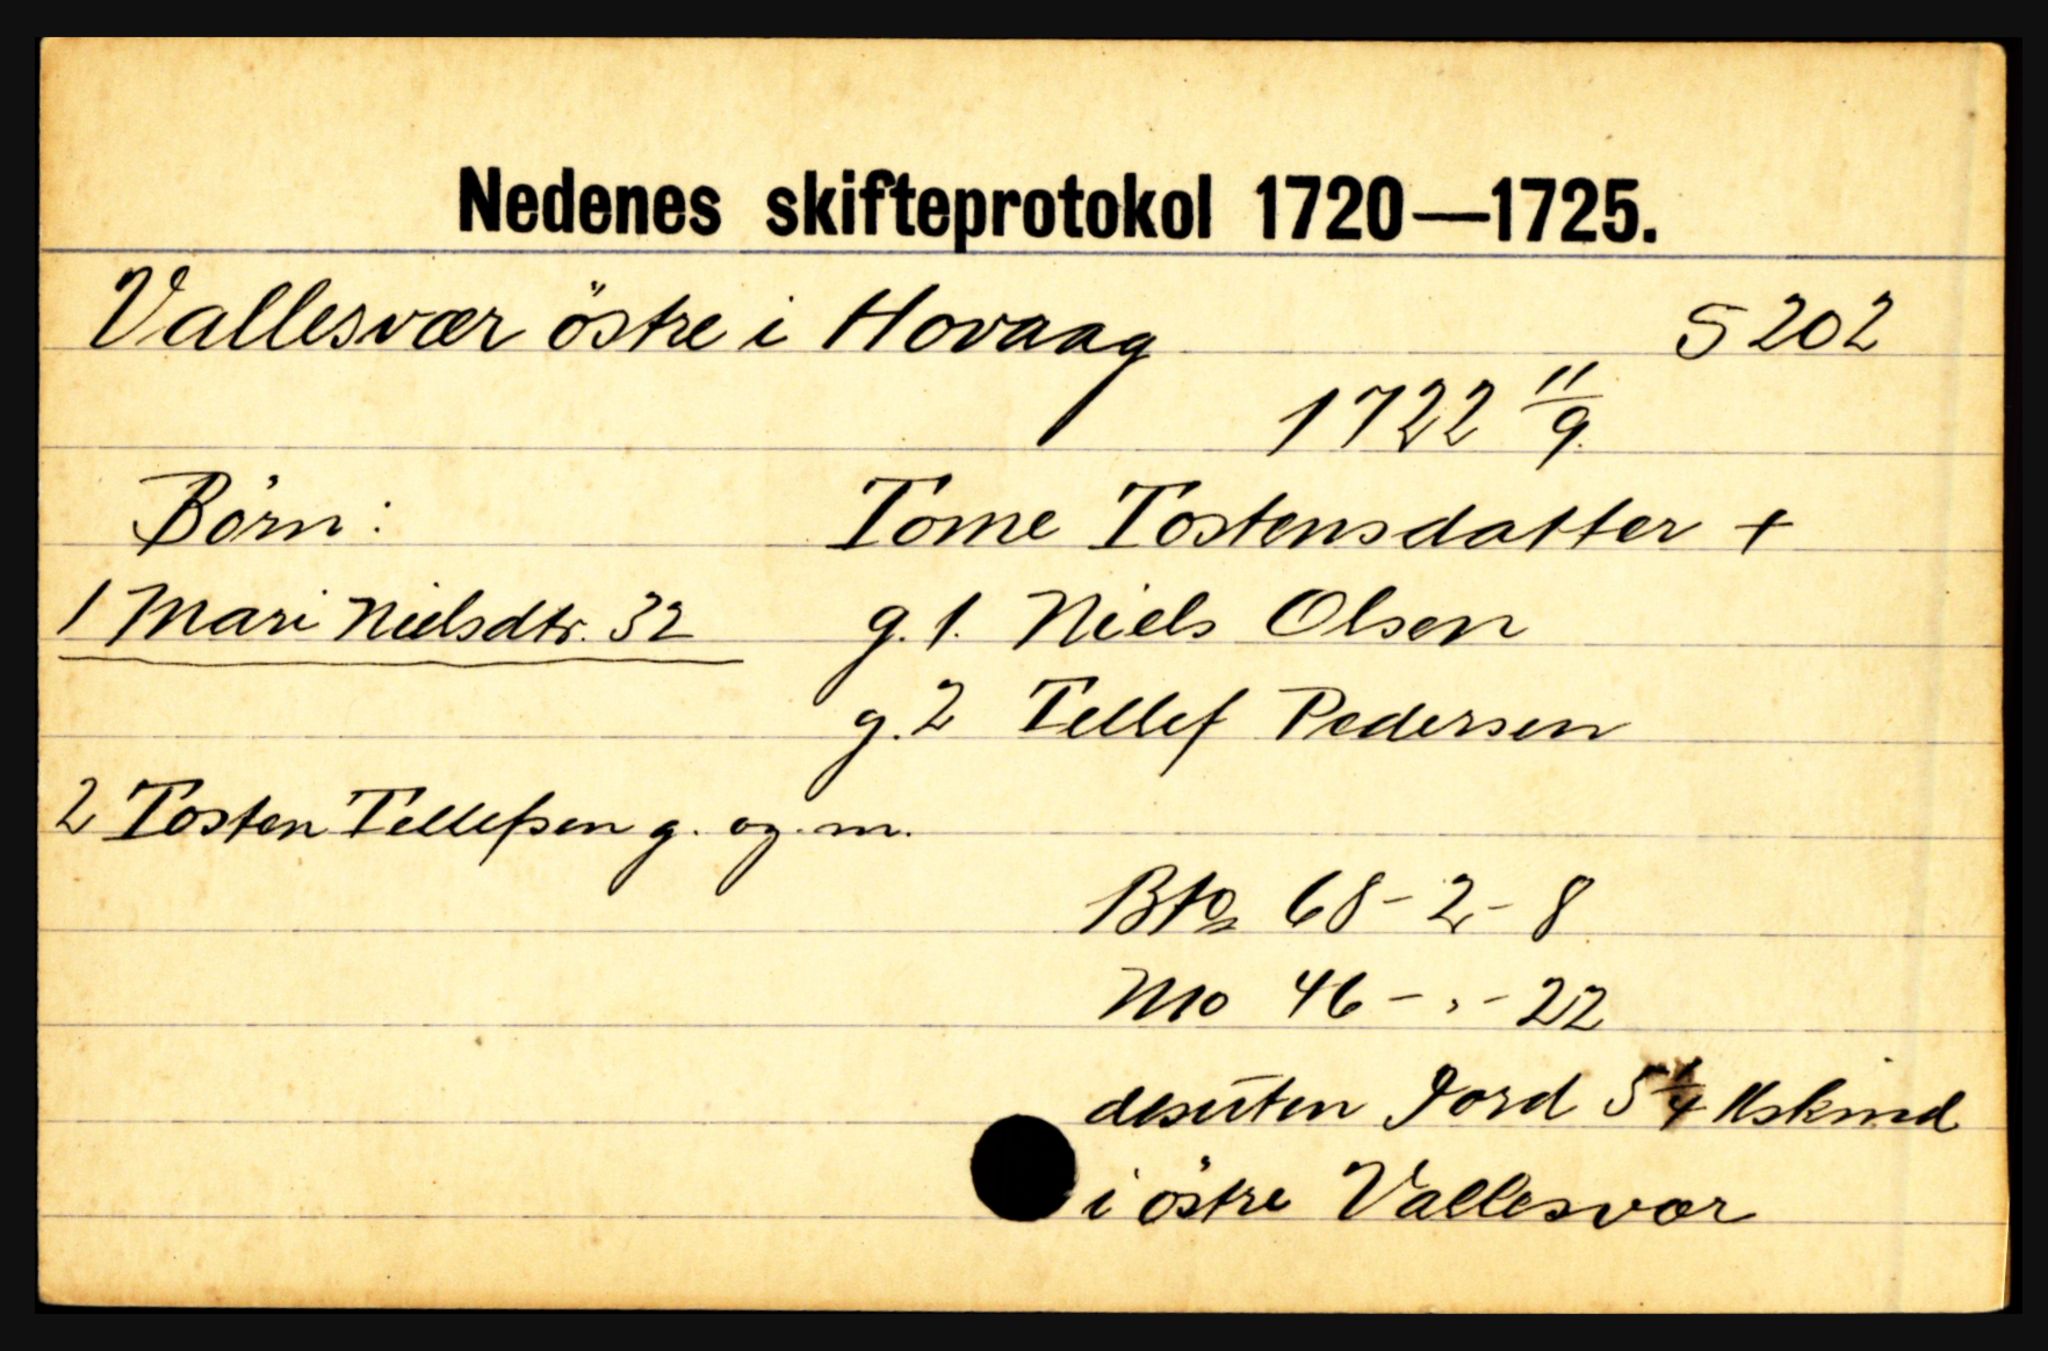 Nedenes skifteprotokol 1720—1725.
Vallesvær östre i Hovaag S 202
1722 11/9.
Börn: Tome Tostensdatter +
1 Mari Nielsdtr. 32 g. 1. Niels Olsen
g. 2 Tellef Pedersen
2 Tosten Tellefsen g. og m.
Bto 68 - 2 - 8
Mo 46 - , - 22
desuten Jord 5 1/4 kskind
i östre Vallesvær